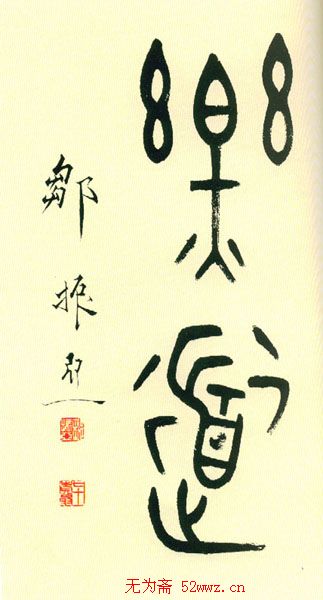 樂道
鄒振亞
无为斋 52wwz.cn